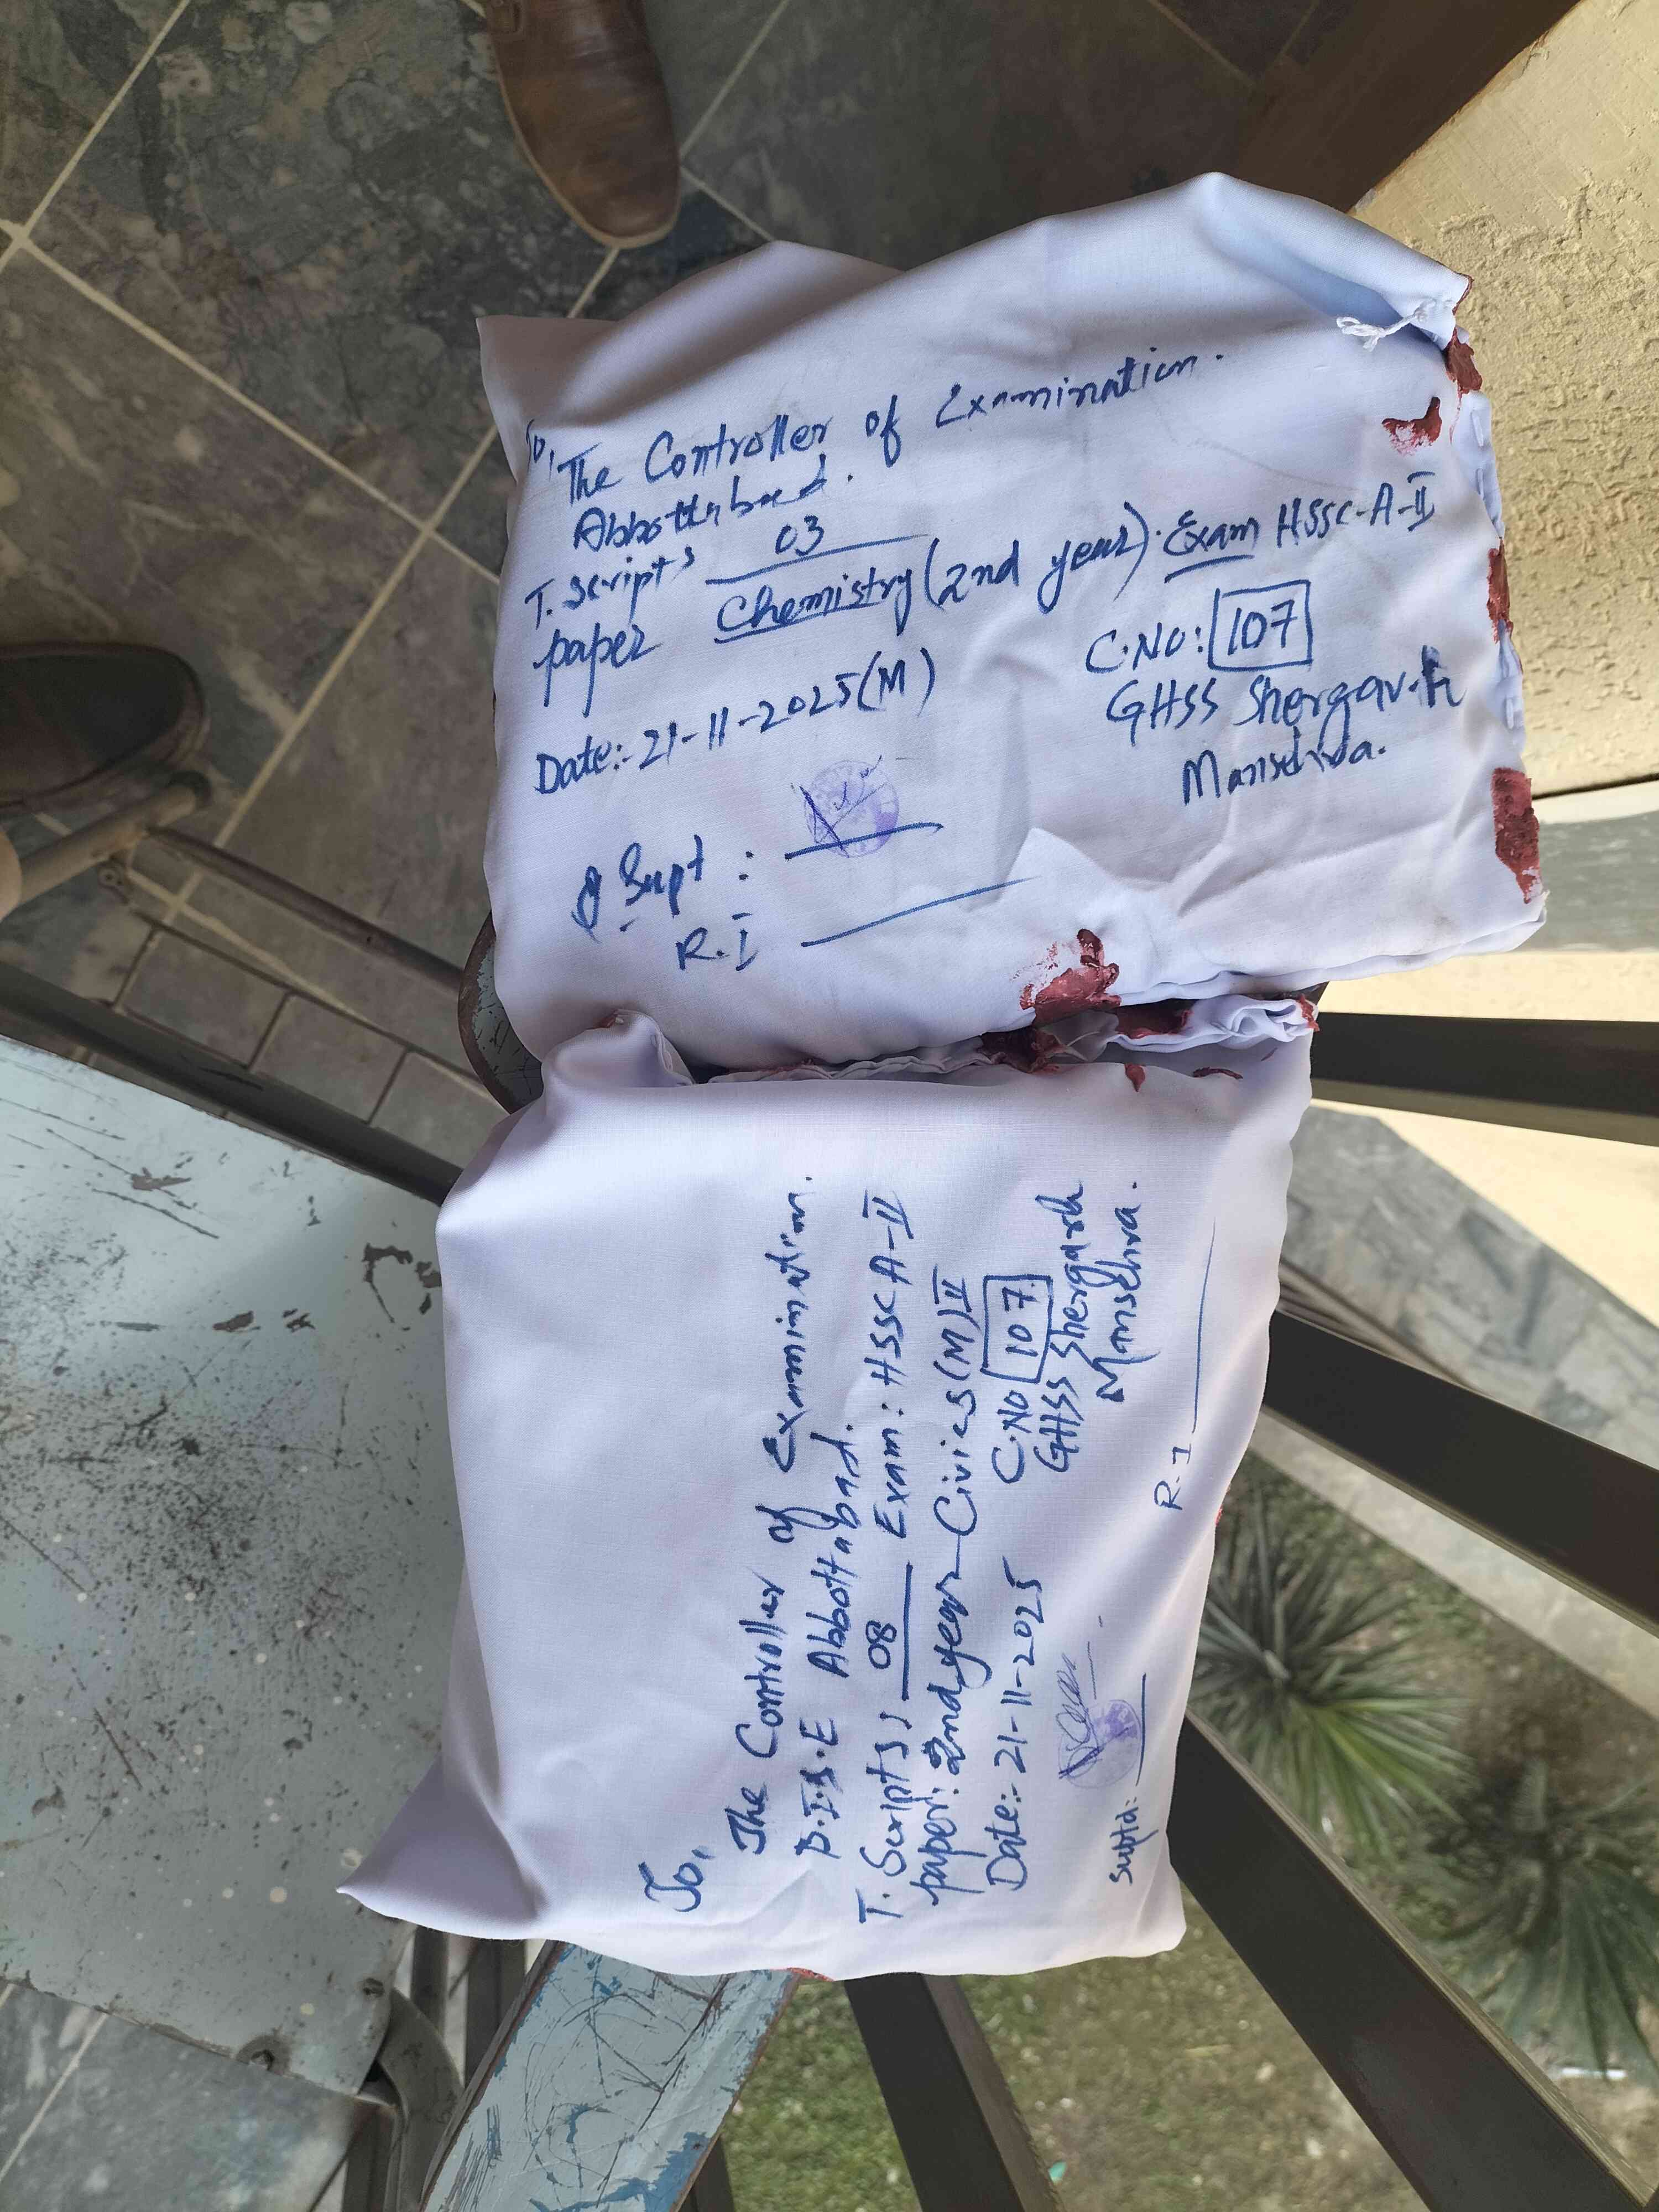 To,
The Controller of Examination.
Abbottabad.
T. Scripts 03
paper Chemistry (2nd year). Exam HSSC-A-II
Date:- 21-11-2025(M)
C.NO: 107
GHSS Shergarh
Mansehra.
Supt :
R.I
To,
The Controller of Examination.
B.I.S.E Abbottabad.
T. Scripts; 08 Exam: HSSC A-II
paper: 2nd year Civics(M)II
Date:- 21-11-2025
C.NO 107
GHSS Shergarh
Mansehra.
Suptd:-
R.I